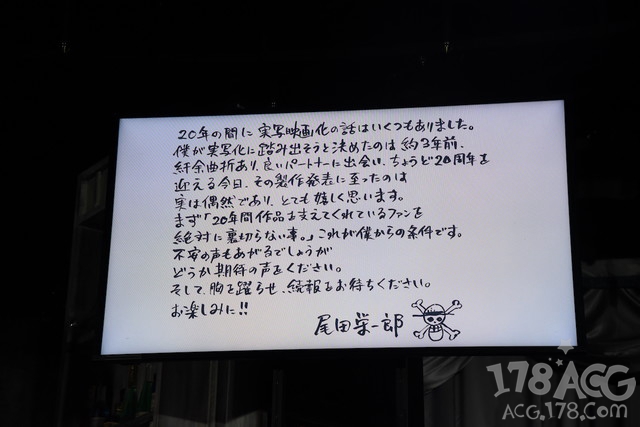 20年の間に実写映画化の話はいくつもありました。
僕が実写化に踏み出そうと決めたのは約3年前。
紆余曲折あり、良いパートナーに出会い、ちょうど20周年を
迎える今日、その製作発表に至ったのは
実は偶然であり、とても嬉しく思います。
まず「20年間作品を支えてくれているファンを
絶対に裏切らない事。」これが僕からの条件です。
不安の声もあがるでしょうが
どうか期待の声をください。
そして、胸を躍らせ、続報をお待ちください。
お楽しみに!!
尾田栄一郎
178ACG
ACG.178.COM